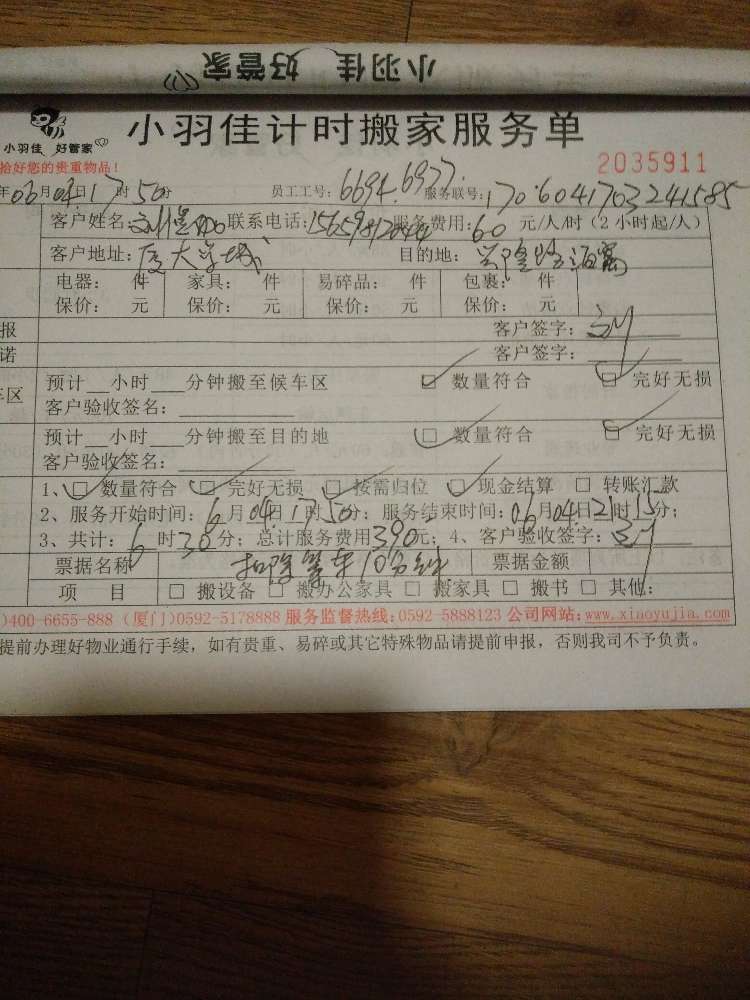 小羽佳 好管家
小羽佳 好管家
小羽佳计时搬家服务单
拾好您的贵重物品！
2035911
年06月04日17时50分 员工工号：6694.6977 服务联号：1706041703241585
客户姓名： 联系电话： 服务费用：60 元/人/时（2小时起/人）
客户地址：厦大学城 目的地：
电器： 件 家具： 件 易碎品： 件 包裹： 件
保价： 元 保价： 元 保价： 元 保价： 元
报 客户签字：
诺 客户签字：
预计 小时 分钟搬至候车区 ☑ 数量符合 ☑ 完好无损
车区 客户验收签名：
预计 小时 分钟搬至目的地 ☑ 数量符合 ☑ 完好无损
客户验收签名：
1、☑ 数量符合 ☑ 完好无损 ☑ 按需归位 ☑ 现金结算 □ 转账汇款
2、服务开始时间：6月04日17时50分；服务结束时间：06月04日21时15分；
3、共计：6时30分；总计服务费用390元；4、客户验收签字：
票据名称 扣除等车10分钟 票据金额
项 目 □ 搬设备 □ 搬办公家具 □ 搬家具 □ 搬书 □ 其他：
)400-6655-888 (厦门)0592-5178888 服务监督热线：0592-5888123 公司网站：www.xiaoyujia.com
提前办理好物业通行手续，如有贵重、易碎或其它特殊物品请提前申报，否则我司不予负责。